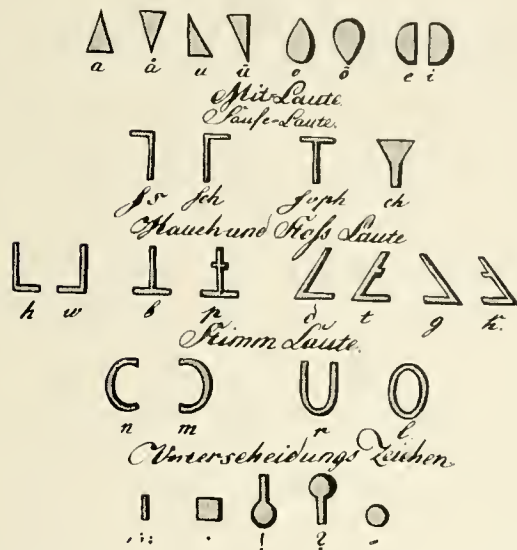 a ä u ü o ö e i
Mit-Laute.
Sause-Laute.
ſs ſch ſoph ch
Hauch und Stoſs Laute
h w b p d t g k.
Stimm Laute.
n m r l
Unterscheidungs Zeichen
, ; : . ! ? -